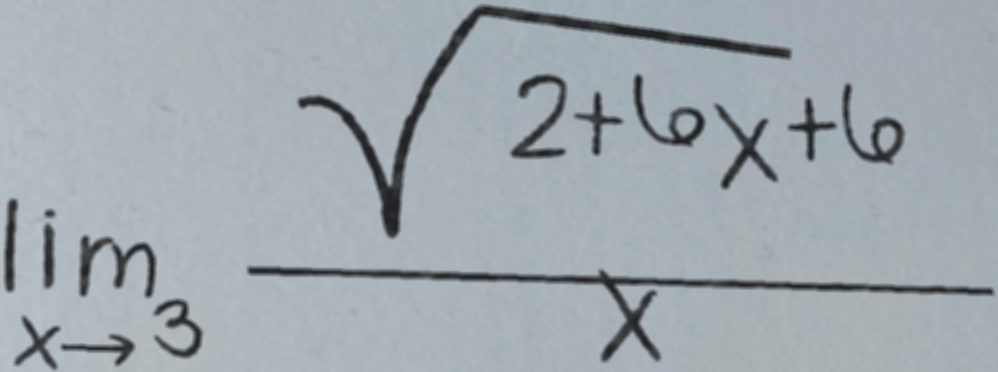 \lim_{x \to 3} \frac{\sqrt{2+6x}+6}{x}